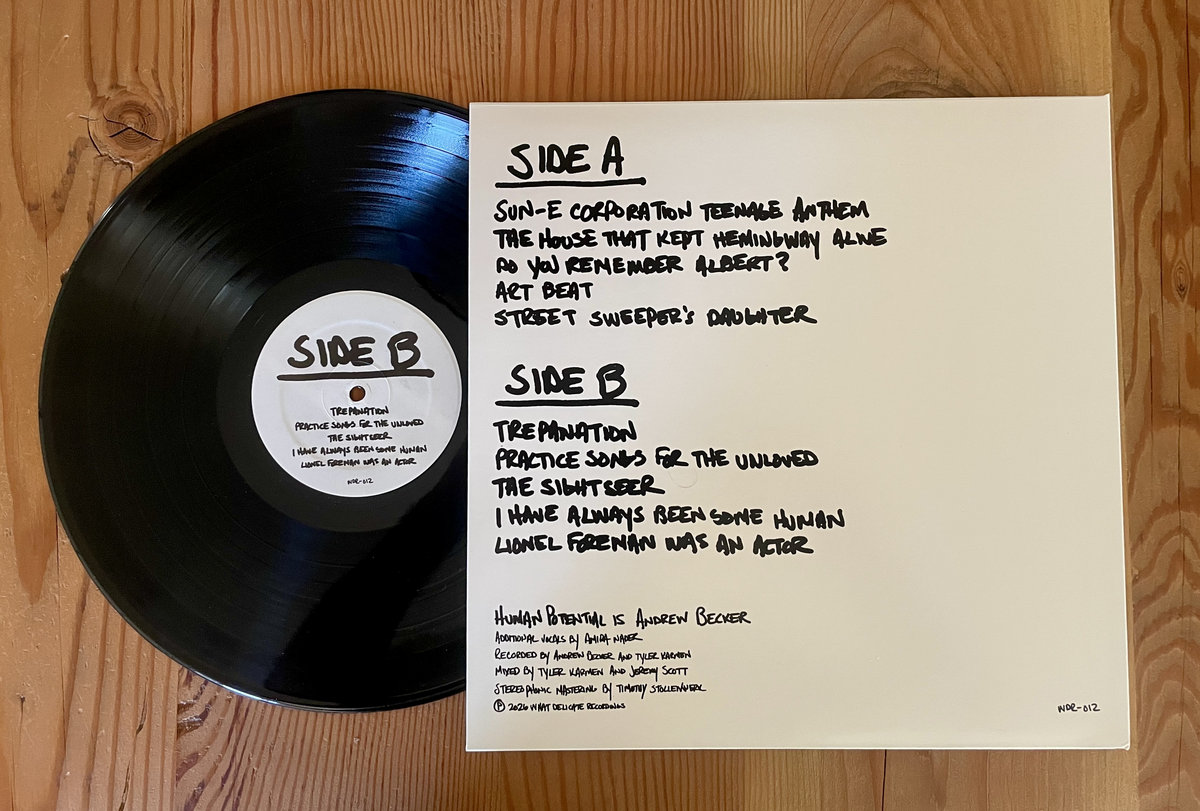 SIDE B
TREPANATION
PRACTICE SONGS FOR THE UNLOVED
THE SIGHTSEER
I HAVE ALWAYS BEEN SOME HUMAN
LIONEL FOREMAN WAS AN ACTOR
WDR-012
SIDE A
SUN-E CORPORATION TEENAGE ANTHEM
THE HOUSE THAT KEPT HEMINGWAY ALIVE
DO YOU REMEMBER ALBERT?
ART BEAT
STREET SWEEPER'S DAUGHTER
SIDE B
TREPANATION
PRACTICE SONGS FOR THE UNLOVED
THE SIGHTSEER
I HAVE ALWAYS BEEN SOME HUMAN
LIONEL FOREMAN WAS AN ACTOR
HUMAN POTENTIAL IS ANDREW BECKER
ADDITIONAL VOCALS BY AMIRA NADER
RECORDED BY ANDREW BECKER AND TYLER KARMEN
MIXED BY TYLER KARMEN AND JEREMY SCOTT
STEREOPHONIC MASTERING BY TIMOTHY STOLLENWERK
℗ 2026 WHAT DELICATE RECORDINGS
WDR-012